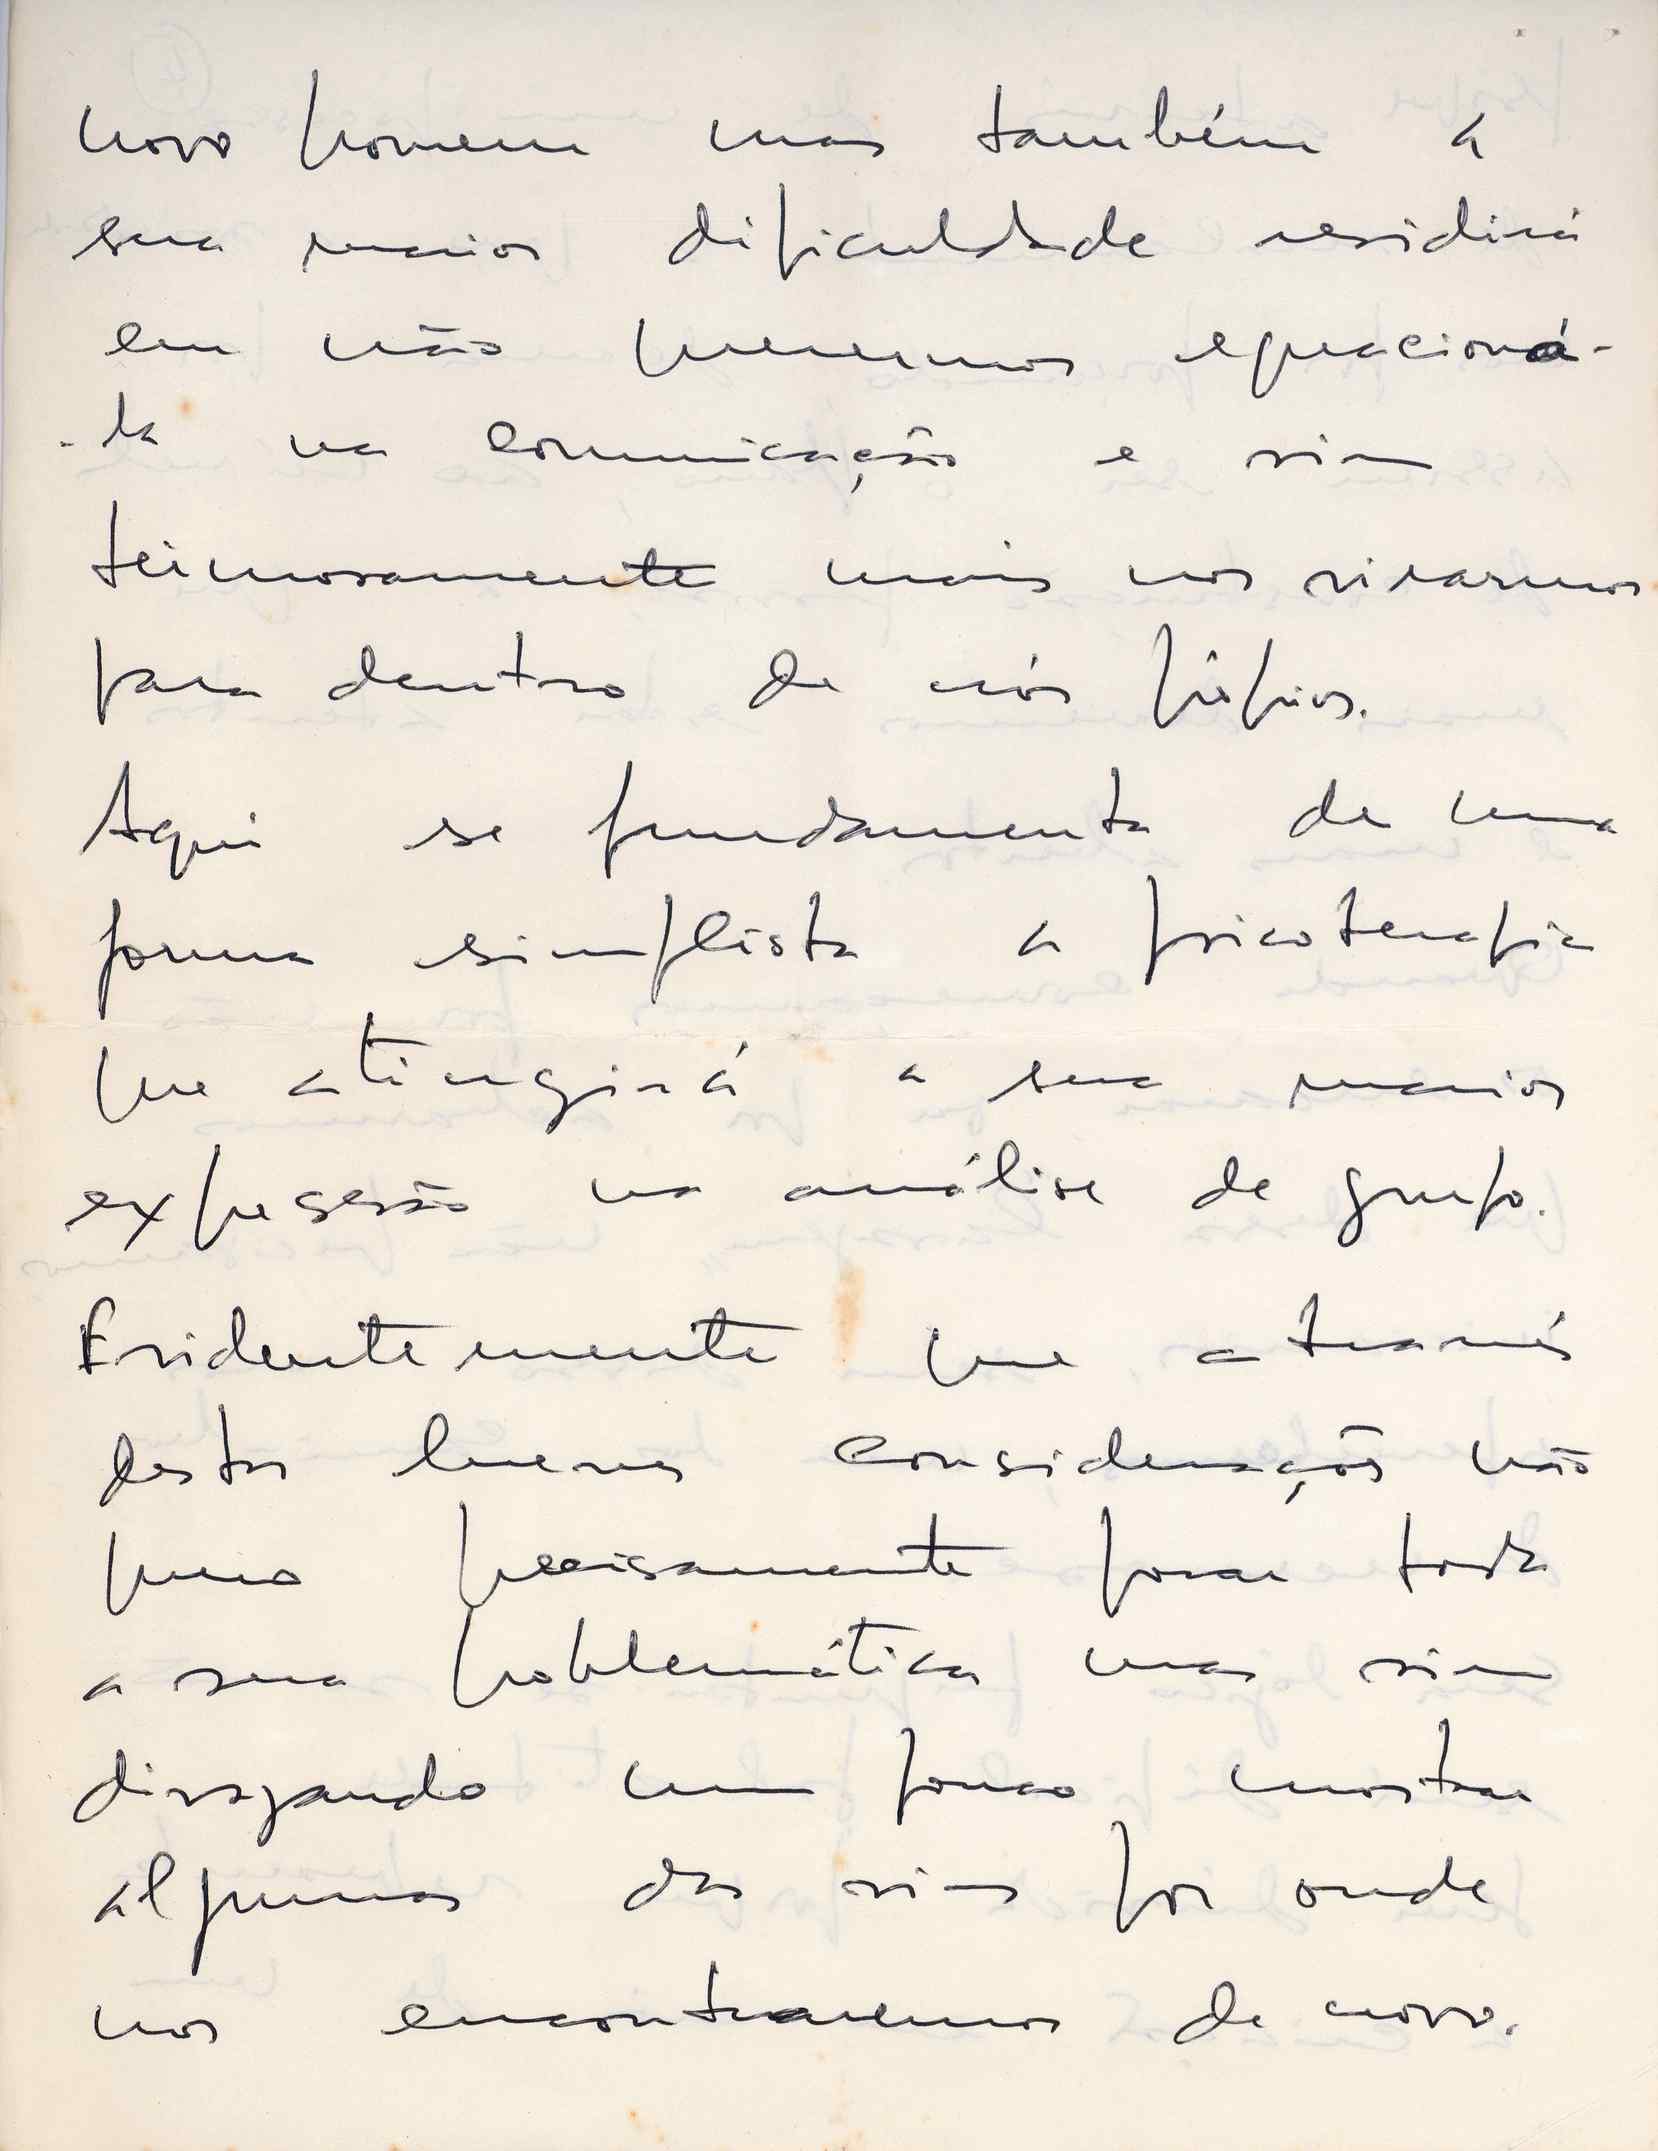 novo homem mas também a
sua maior dificuldade residirá
em não querermos equacioná-
-la na comunicação e sim
teimosamente mais nos virarmos
para dentro de nós próprios.
Aqui se fundamenta de uma
forma simplista a psicoterapia
que atingirá a sua maior
expressão na análise de grupo.
Evidentemente que através
destas breves considerações não
quero precisamente focar toda
a sua problemática mas sim
divagando um pouco mostrar
algumas das vias por onde
nos encontraremos de novo.